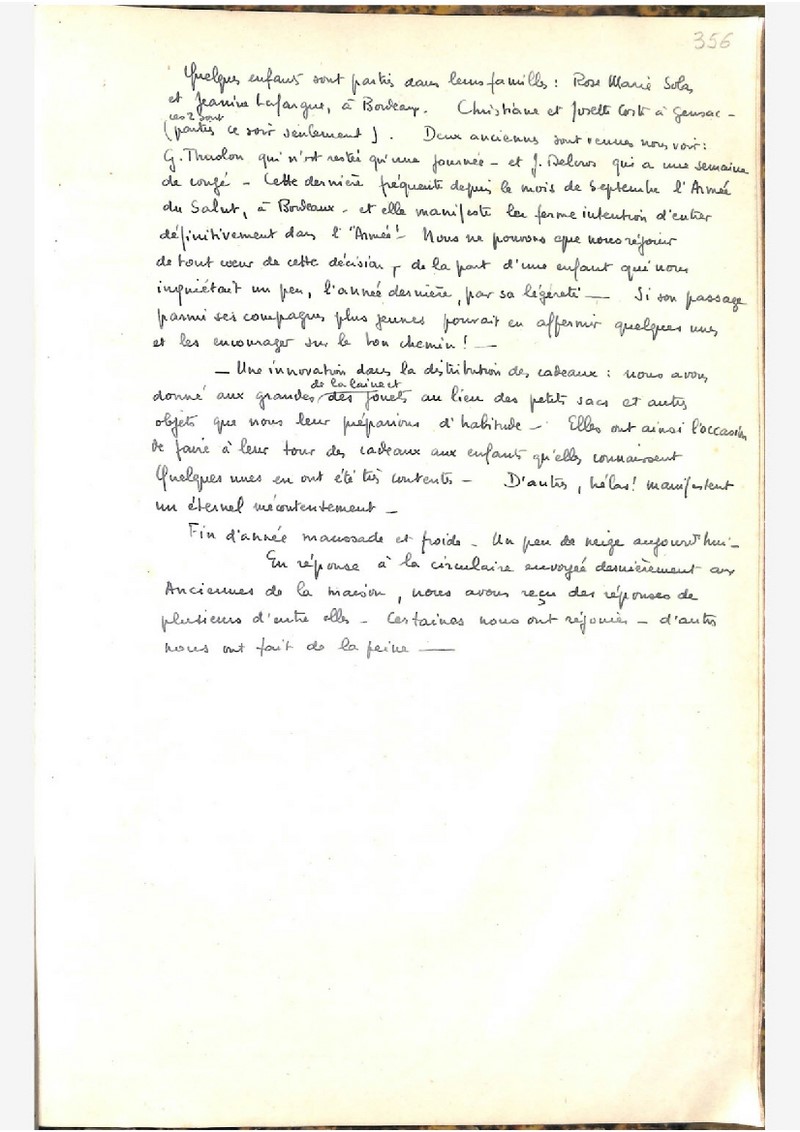 356
Quelques enfants sont parties dans leurs familles : Rose Marie Solas
et Jeanine Lafargue, à Bordeaux. Christiane et Josette Coste à Gensac -
ces 2 sont
(parties ce soir seulement). Deux anciennes sont venues nous voir :
G. Thuolon qui n'est restée qu'une journée - et J. Delvros qui a une semaine
de congé - Cette dernière fréquente depuis le mois de Septembre l'Armée
du Salut, à Bordeaux - et elle manifeste la ferme intention d'entrer
définitivement dans l'"Armée"! Nous ne pouvons que nous réjouir
de tout cœur de cette décision, de la part d'une enfant qui nous
inquiétait un peu, l'année dernière, par sa légèreté — Si son passage
parmi ses compagnes plus jeunes pouvait en affermir quelques unes
et les encourager sur le bon chemin ! —
— Une innovation dans la distribution des cadeaux : nous avons
de la laine et
donné aux grandes des jouets au lieu des petits sacs et autres
objets que nous leur préparions d'habitude - Elles ont ainsi l'occasion
de faire à leur tour des cadeaux aux enfants qu'elles connaissent
Quelques unes en ont été très contentes - D'autres, hélas ! manifestent
un éternel mécontentement -
Fin d'année maussade et froide - Un peu de neige aujourd'hui -
En réponse à la circulaire envoyée dernièrement aux
Anciennes de la maison, nous avons reçu des réponses de
plusieurs d'entre elles - Certaines nous ont réjouies - d'autres
nous ont fait de la peine —